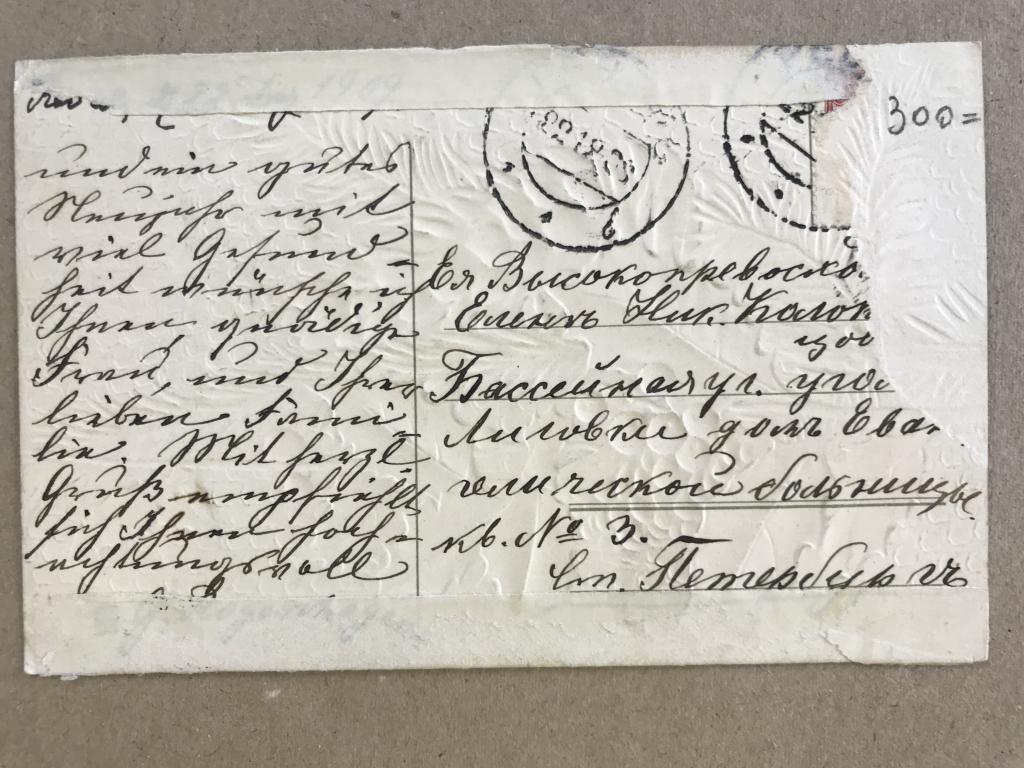 300=
und ein gutes
Neujahr mit
viel Gesund-
heit wünsche ich
Ihnen, gnädige
Frau, und Ihrer
lieben Fami-
lie. Mit herzl.
Gruß empfiehlt
sich Ihnen hoch-
achtungsvoll
Ея Высокопревосхо
Еленѣ Ник. Калач
цов
Бассейная уг. угол
Лиговки домъ Еван
гелической больницы.
кв. № 3.
Ст. Петербургъ